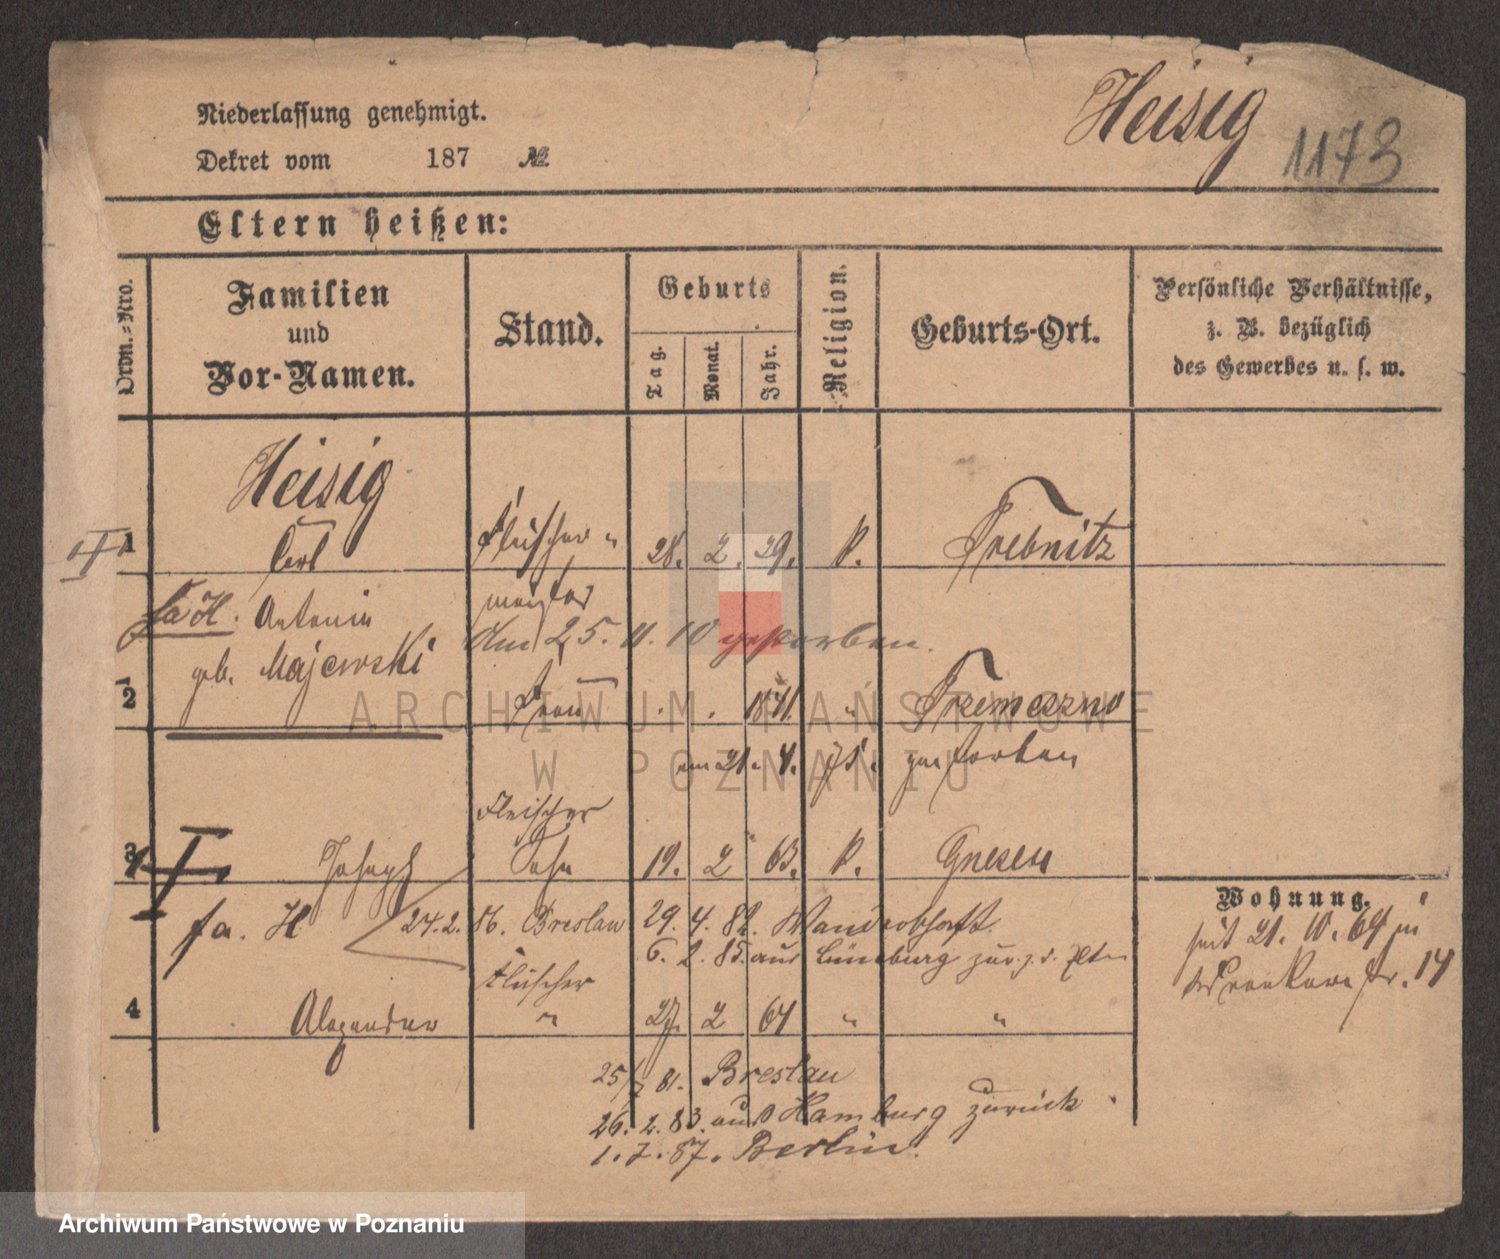 Niederlassung genehmigt.
Dekret vom 187 №
Heisig
1173
Eltern heißen:
Ordn.=Nro.
Familien
und
Vor-Namen.
Stand.
Geburts
Tag.
Monat.
Jahr.
Religion.
Geburts-Ort.
Persönliche Verhältnisse,
z. B. bezüglich
des Gewerbes u. s. w.
Heisig
1 Carl Fleischer 28. 2. 29. k. Trebnitz
meister
fa H. Antonie
Am 25. 11. 10 gestorben.
geb. Majewski
2 Frau 1841. " Tremeszno
am 21. 4. gestorben
Fleischer
3 Joseph Sohn 19. 2 63. k. Gnesen
fa. H 24. 2. 86. Breslau 29. 4. 82. Wanderschaft.
6. 2. 85. aus Lüneburg zur.
Fleischer
4 Alexander " 27. 2 64 " "
Wohnung.
seit 21. 10. 64
14
25/7 81. Breslau
26. 2. 83. aus Hamburg zurück.
1. 7. 87. Berlin.
ARCHIWUM PAŃSTWOWE
W POZNANIU
Archiwum Państwowe w Poznaniu